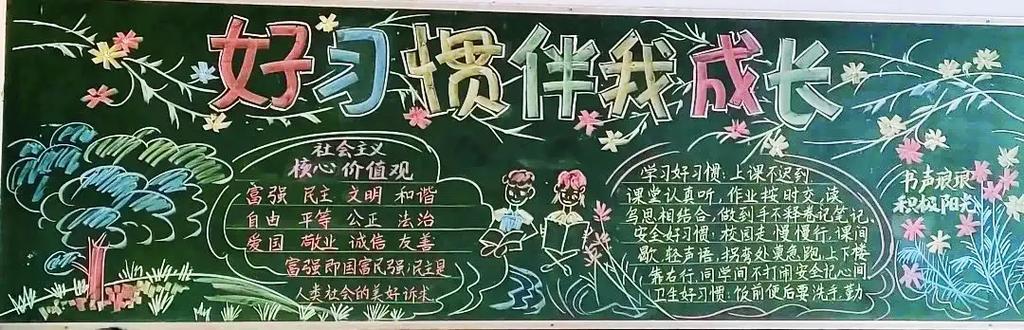 好习惯伴我成长
社会主义
核心价值观
富强 民主 文明 和谐
自由 平等 公正 法治
爱国 敬业 诚信 友善
富强即国富民强;民主是
人类社会的美好诉求
学习好习惯:上课不迟到
课堂认真听,作业按时交,读
写思相结合,做到手不释卷记笔记.
安全好习惯:校园走慢慢行,课间
歇,轻声语,拐弯处莫急跑,上下楼,
靠右行,同学间不打闹安全记心间
卫生好习惯:饭前便后要洗手,勤
书声琅琅
积极阳光